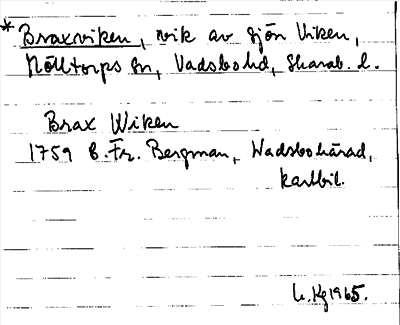 * Braxviken, vik av sjön Viken,
Mölltorps sn, Vadsbo hd, Skarab. l.
Brax Wiken
1759 C. Fr. Bergman, Wadsbohärad,
kartbil.
L. Kg 1965.